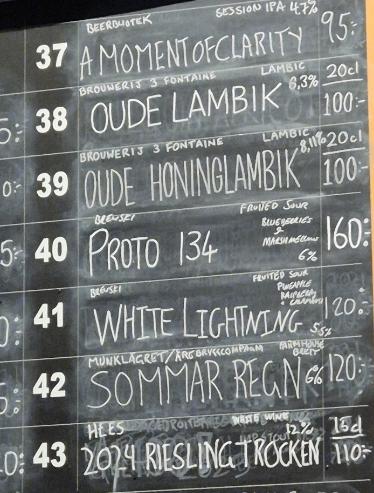 BEERBLIOTEK SESSION IPA 4,7%
37 A MOMENT OF CLARITY 95:-
BROUWERIJ 3 FONTAINE LAMBIC 20cl
38 OUDE LAMBIK 6,3% 100:-
BROUWERIJ 3 FONTAINE LAMBIC 20cl
39 OUDE HONINGLAMBIK 8,11% 100:-
BREWSKI FRUITED SOUR
BLUEBERRIES
&
MARSHMELLOW
40 PROTO 134 6% 160:-
BREWSKI FRUITED SOUR
PINEAPLE
RASPBERRY
41 WHITE LIGHTNING 5,5% 120:-
MUNKLAGRET/ FARMHOUSE
BRETT
42 SOMMAR REGN 6% 120:-
HEES WHITE WINE 15cl
12%
43 2024 RIESLING TROCKEN 110:-
5:-
0:-
5:-
0:-
5:-
0:-